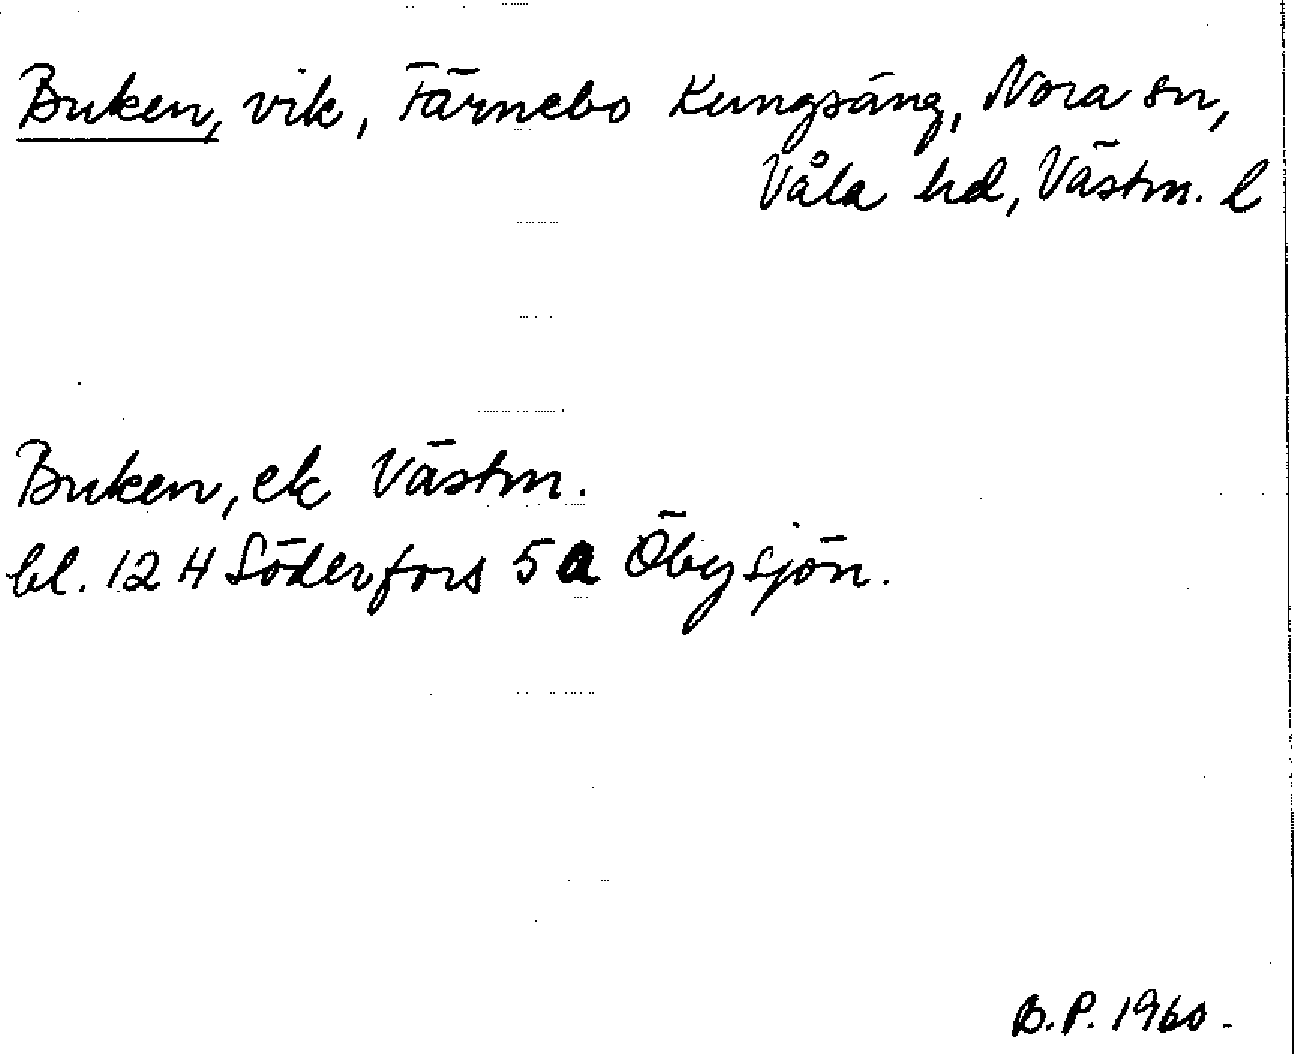 Buken, vik, Färnebo Kungsäng, Nora sn,
Våla hd, Västm. l
Buken, ek Västm.
bl. 12 H Söderfors 5 a Öbysjön.
B.P. 1960.